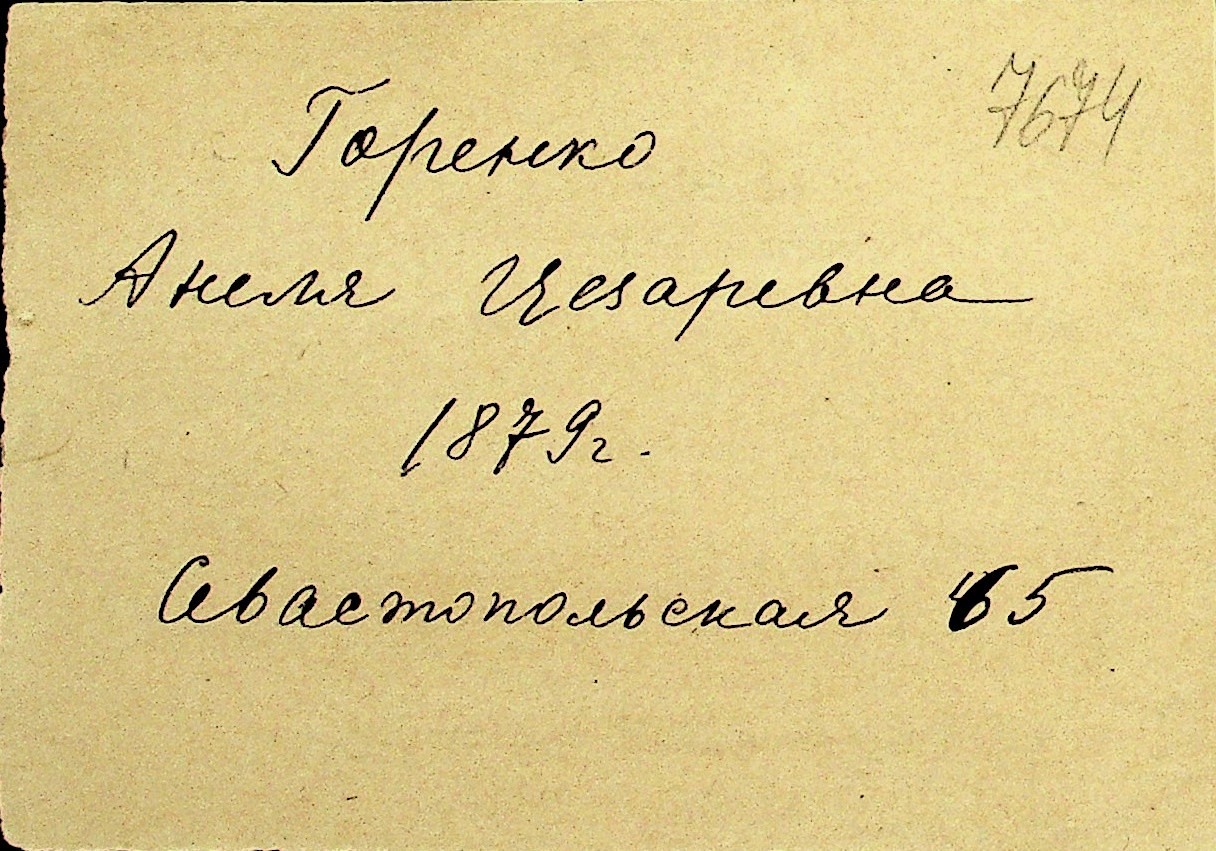 7674
Горенко
Анеля Цезаревна
1879г.
Севастопольская 65